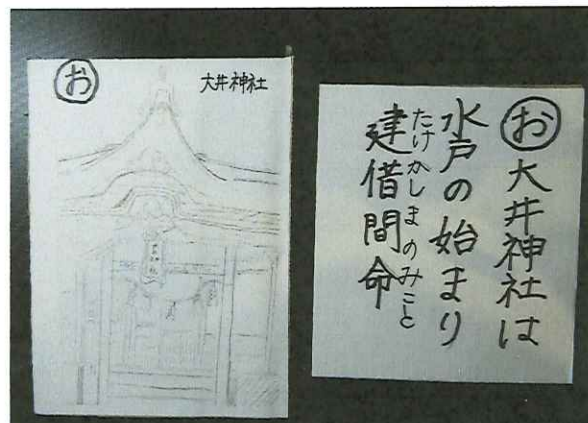 お
大井神社
お大井神社は
水戸の始まり
たけかしまのみこと
建借間命